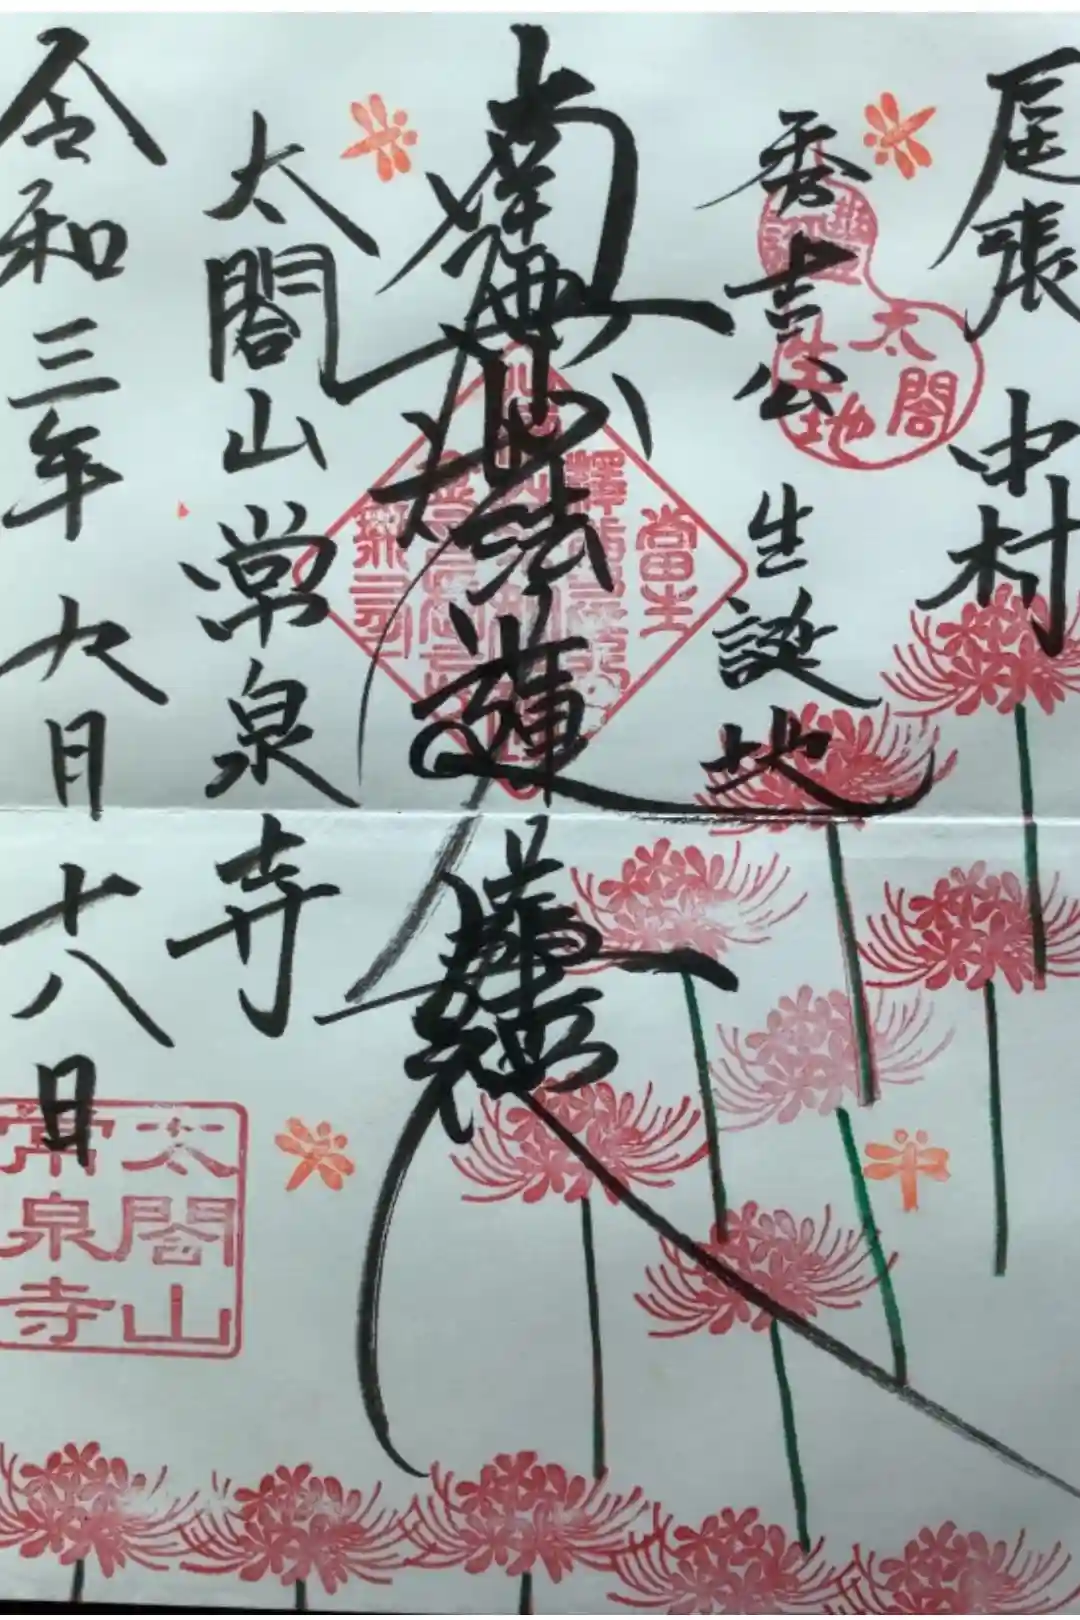 尾張 中村
秀吉公 生誕地
南無妙法蓮華経
太閤山常泉寺
令和三年九月十八日
豊
太閤
生地
當生
太閤山
常泉寺